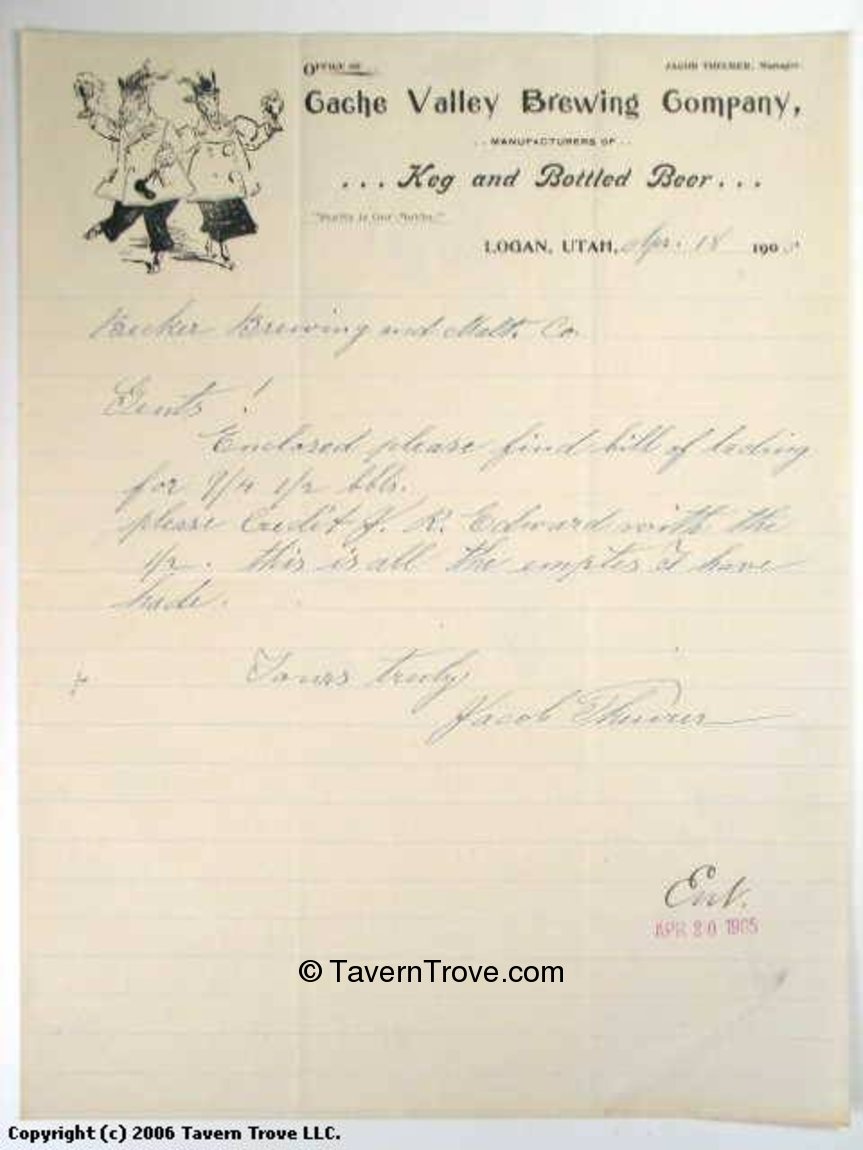 OFFICE OF
JACOB THEURER, Manager.
Cache Valley Brewing Company,
.. MANUFACTURERS OF ..
... Keg and Bottled Beer ...
"Purity is Our Motto."
LOGAN, UTAH, Apr. 18 190
Becker Brewing and Malt. Co
Gents !
Enclosed please find bill of lading
for 9/4 1/2 bbls.
please Credit J. R. Edward with the
1/2. this is all the empties I have
hade.
Yours truly
Jacob Theurer
Ent.
APR 20 1905
© TavernTrove.com
Copyright (c) 2006 Tavern Trove LLC.